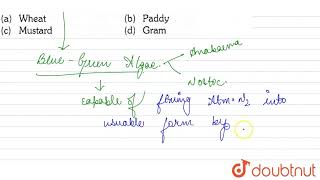 (a) Wheat (b) Paddy
(c) Mustard (d) Gram
Blue-Green Algae.
Anabaena
Nostoc
capable of fixing Atm. N₂ into
usuable form by
doubtnut